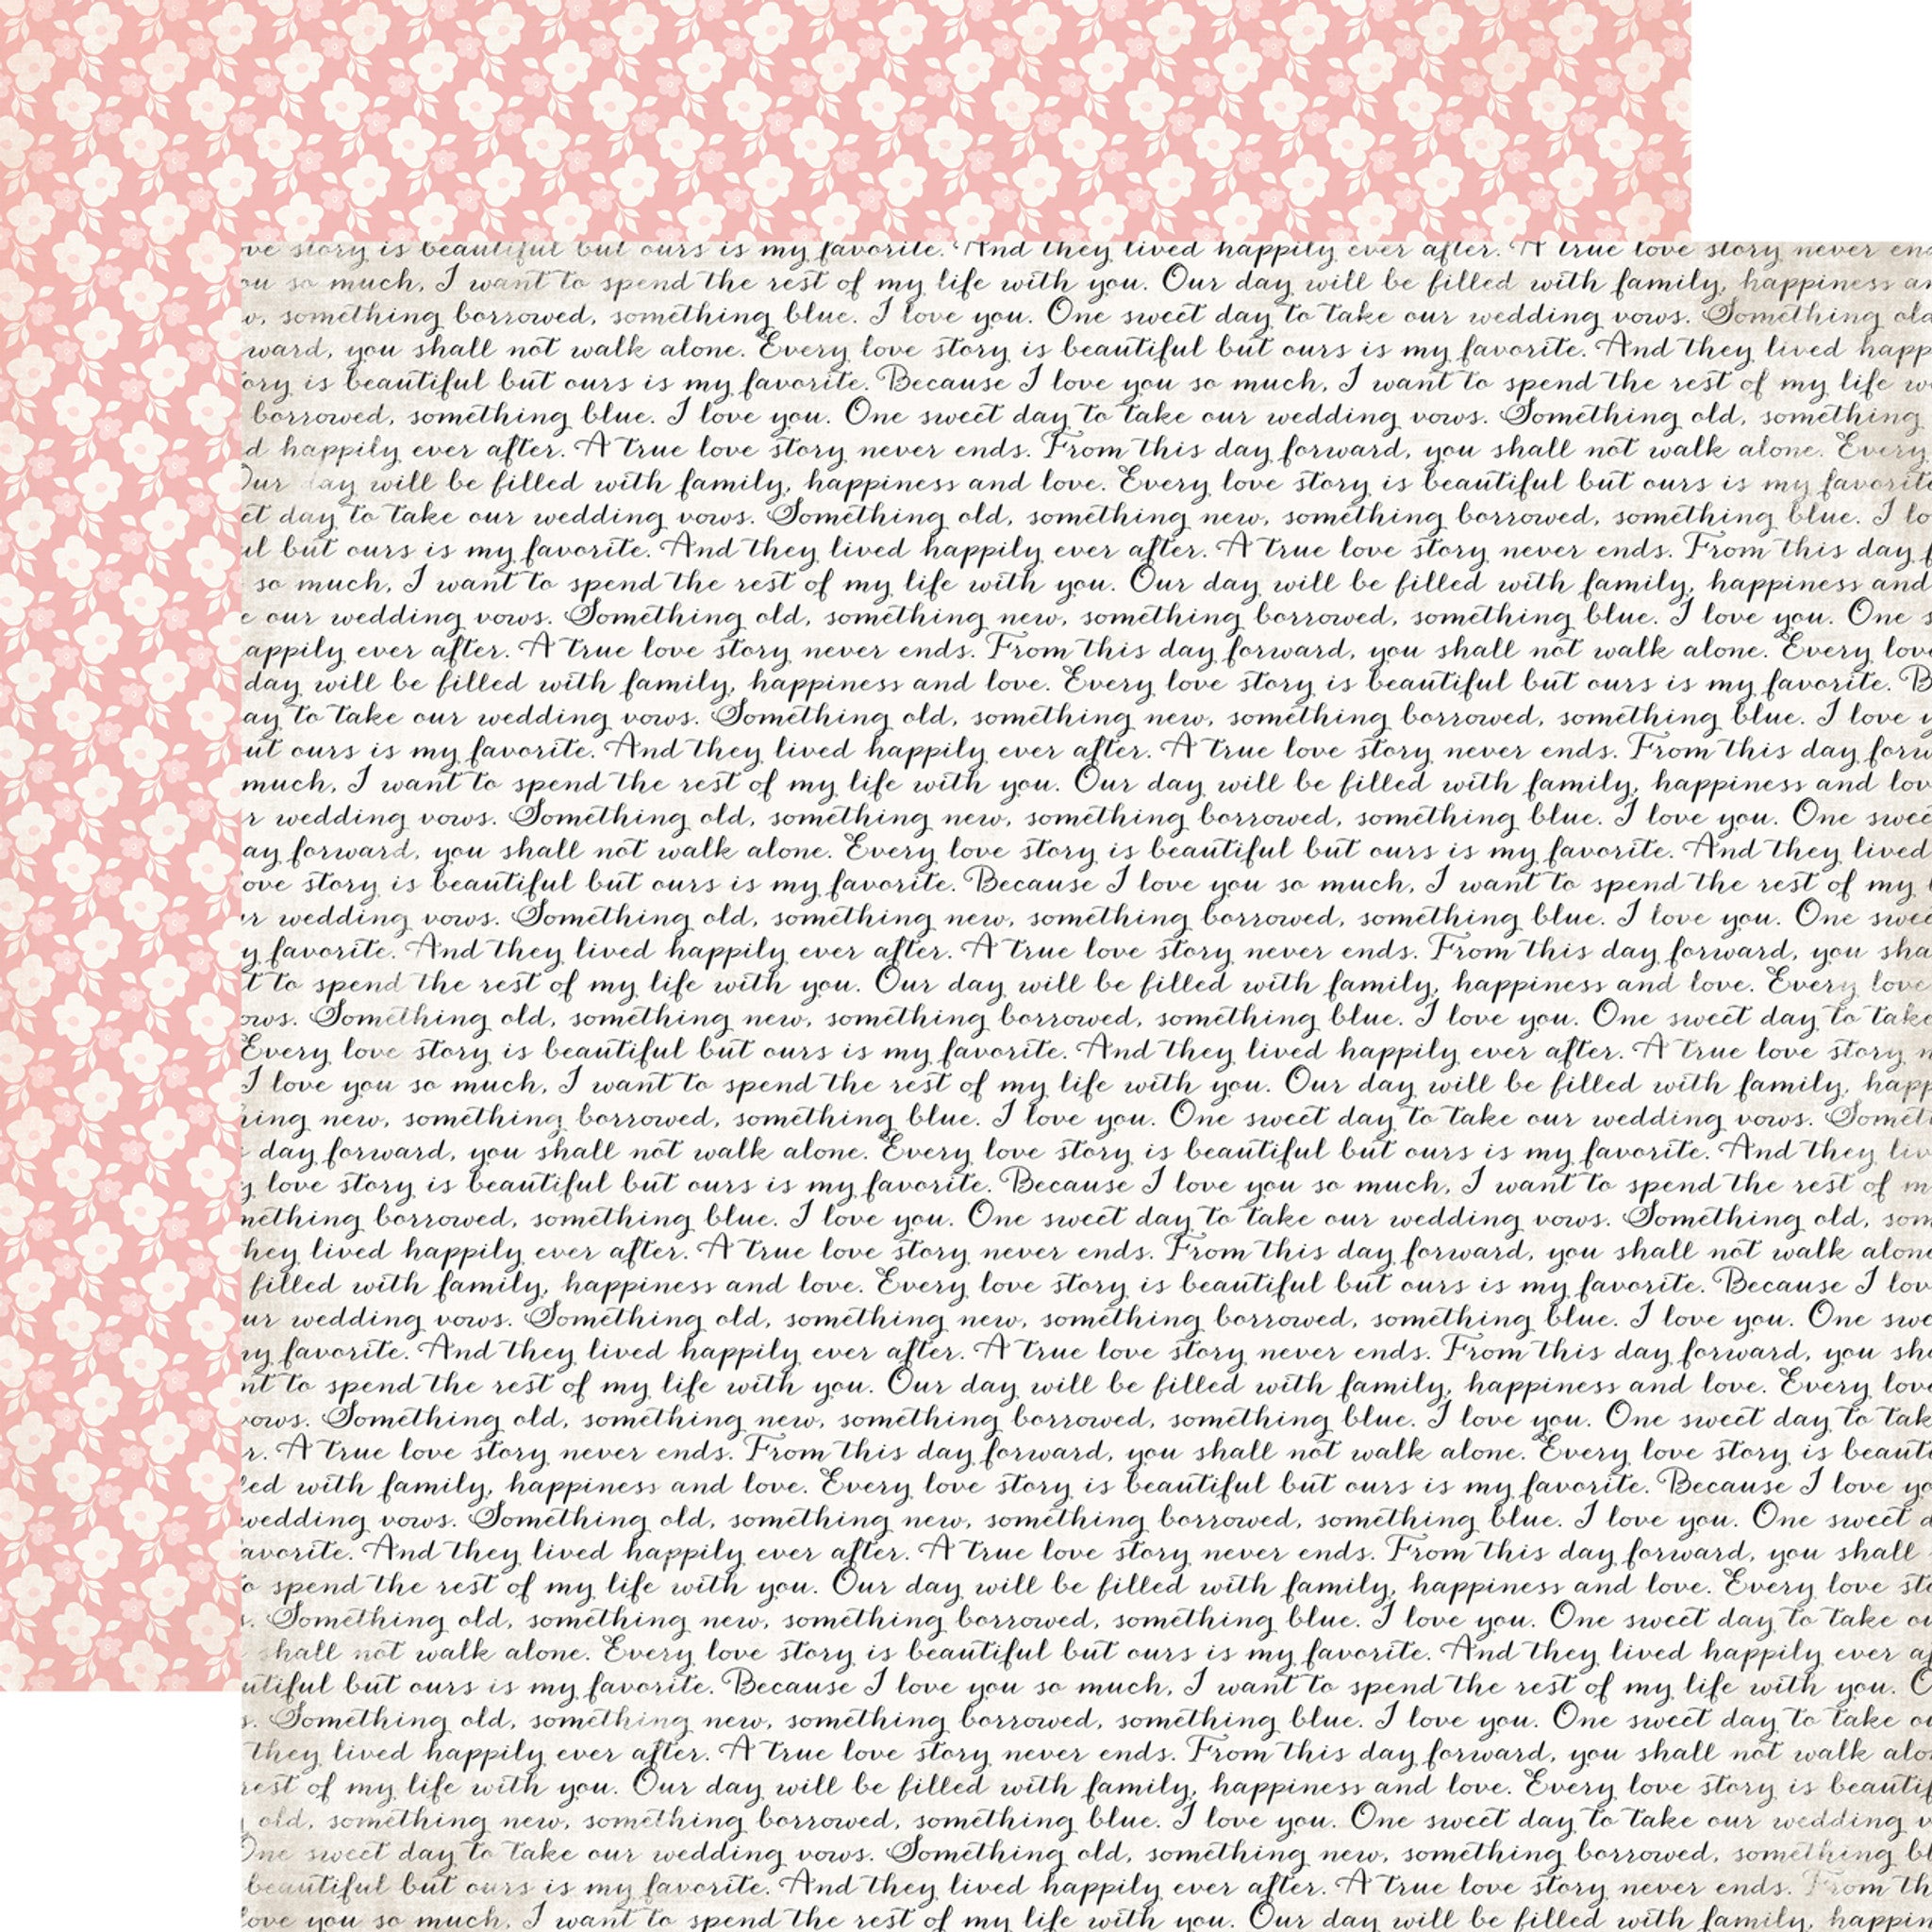 story is beautiful but ours is my favorite. And they lived happily ever after. A true love story never
so much, I want to spend the rest of my life with you. Our day will be filled with family, happiness
something borrowed, something blue. I love you. One sweet day to take our wedding vows. Something old
ward, you shall not walk alone. Every love story is beautiful but ours is my favorite. And they lived happ
ory is beautiful but ours is my favorite. Because I love you so much, I want to spend the rest of my life
borrowed, something blue. I love you. One sweet day to take our wedding vows. Something old, something
d happily ever after. A true love story never ends. From this day forward, you shall not walk alone. Every
Our day will be filled with family, happiness and love. Every love story is beautiful but ours is my favorite
et day to take our wedding vows. Something old, something new, something borrowed, something blue. I lo
ul but ours is my favorite. And they lived happily ever after. A true love story never ends. From this day f
so much, I want to spend the rest of my life with you. Our day will be filled with family, happiness and
e our wedding vows. Something old, something new, something borrowed, something blue. I love you. One s
appily ever after. A true love story never ends. From this day forward, you shall not walk alone. Every love
day will be filled with family, happiness and love. Every love story is beautiful but ours is my favorite. B
ay to take our wedding vows. Something old, something new, something borrowed, something blue. I love y
ut ours is my favorite. And they lived happily ever after. A true love story never ends. From this day forw
much, I want to spend the rest of my life with you. Our day will be filled with family, happiness and lov
r wedding vows. Something old, something new, something borrowed, something blue. I love you. One swee
ay forward, you shall not walk alone. Every love story is beautiful but ours is my favorite. And they lived
ove story is beautiful but ours is my favorite. Because I love you so much, I want to spend the rest of my
r wedding vows. Something old, something new, something borrowed, something blue. I love you. One swee
y favorite. And they lived happily ever after. A true love story never ends. From this day forward, you sha
t to spend the rest of my life with you. Our day will be filled with family, happiness and love. Every love
ows. Something old, something new, something borrowed, something blue. I love you. One sweet day to take
Every love story is beautiful but ours is my favorite. And they lived happily ever after. A true love story n
I love you so much, I want to spend the rest of my life with you. Our day will be filled with family, happ
hing new, something borrowed, something blue. I love you. One sweet day to take our wedding vows. Someth
day forward, you shall not walk alone. Every love story is beautiful but ours is my favorite. And they liv
y love story is beautiful but ours is my favorite. Because I love you so much, I want to spend the rest of m
mething borrowed, something blue. I love you. One sweet day to take our wedding vows. Something old, som
hey lived happily ever after. A true love story never ends. From this day forward, you shall not walk alone
filled with family, happiness and love. Every love story is beautiful but ours is my favorite. Because I lov
ur wedding vows. Something old, something new, something borrowed, something blue. I love you. One swe
my favorite. And they lived happily ever after. A true love story never ends. From this day forward, you sha
nt to spend the rest of my life with you. Our day will be filled with family, happiness and love. Every love
vows. Something old, something new, something borrowed, something blue. I love you. One sweet day to tak
r. A true love story never ends. From this day forward, you shall not walk alone. Every love story is beauti
led with family, happiness and love. Every love story is beautiful but ours is my favorite. Because I love yo
wedding vows. Something old, something new, something borrowed, something blue. I love you. One sweet d
avorite. And they lived happily ever after. A true love story never ends. From this day forward, you shall
o spend the rest of my life with you. Our day will be filled with family, happiness and love. Every love sto
s. Something old, something new, something borrowed, something blue. I love you. One sweet day to take ou
shall not walk alone. Every love story is beautiful but ours is my favorite. And they lived happily ever af
utiful but ours is my favorite. Because I love you so much, I want to spend the rest of my life with you. O
s. Something old, something new, something borrowed, something blue. I love you. One sweet day to take ou
they lived happily ever after. A true love story never ends. From this day forward, you shall not walk alo
rest of my life with you. Our day will be filled with family, happiness and love. Every love story is beautif
old, something new, something borrowed, something blue. I love you. One sweet day to take our wedding v
One sweet day to take our wedding vows. Something old, something new, something borrowed, something bl
beautiful but ours is my favorite. And they lived happily ever after. A true love story never ends. From th
love you so much, I want to spend the rest of my life with you. Our day will be filled with family, happin